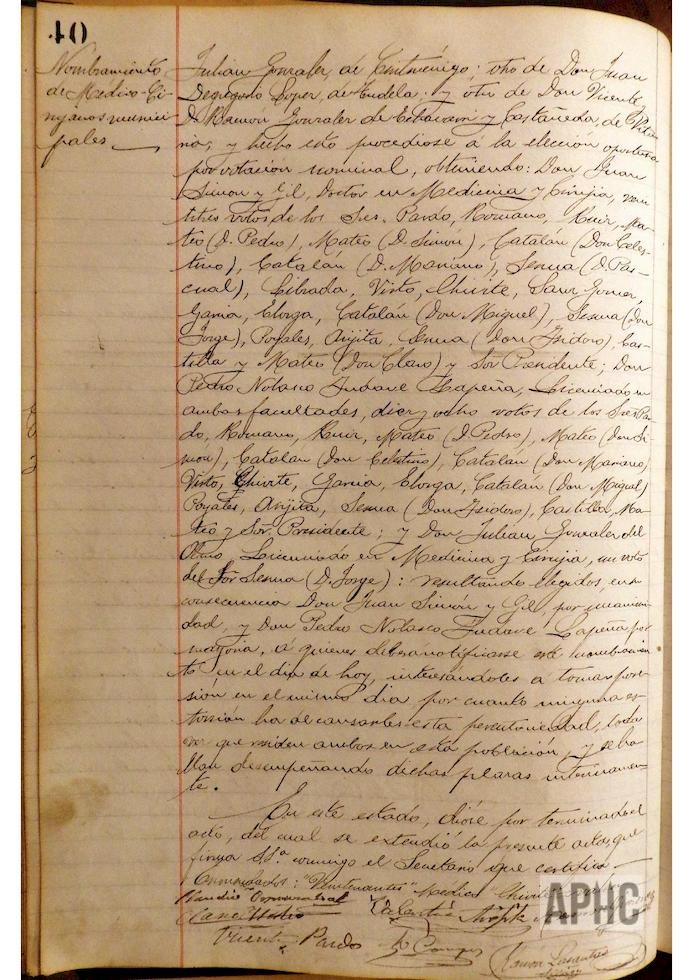 40
Nombramiento
de Medico-Ci-
rujanos munici-
pales
Julian Gonzalez, de Cintruénigo; otro de Don Juan
Lopez, de Tudela y otro de Don Vicente
D. Ramon Gonzalez de Echavarri y Castañeda, de
y hecho esto procediose á la elección oportuna
por votación nominal, obteniendo: Don Juan
Simon y Gil, Doctor en Medicina y Cirujia, vein-
titres votos de los Sres. Pardo, Romano, Ruiz, Ma-
teo (D. Pedro), Mateo (D. Simon), Catalán (Don Celes-
tino), Catalán (D. Mariano), Sesma (D. Pas-
cual), Librada, Virto, Chivite, Sanz Gomez,
Garria, Elorga, Catalán (Don Miguel), Sesma (Don
Jorge), Poyales, Anjita, Sesma (Don Isidoro), Cas-
tilla y Mateo (Don Claro) y Sor. Presidente; Don
Pedro Nolasco Zudaire Lapeña, Licenciado en
ambas facultades, diez y ocho votos de los Sres. Par-
do, Romano, Ruiz, Mateo (D. Pedro), Mateo (Don Si-
mon), Catalán (Don Celestino), Catalán (Don Mariano)
Virto, Chivite, Garria, Elorga, Catalán (Don Miguel)
Poyales, Anjita, Sesma (Don Isidoro), Castilla, Ma-
teo y Sor. Presidente; y Don Julián Gonzalez del
Olmo, Licenciado en Medicina y Cirujia, un voto
del Sor Sesma (D. Jorge): resultando elegidos, en su
consecuencia Don Juan Simón y Gil, por unanimi-
dad, y Don Pedro Nolasco Zudaire Lapeña por
mayoria, á quienes deberá notificarse este nombramien-
to en el dia de hoy, interesándoles á tomar pose-
sion en el mismo dia por cuanto ninguna es-
torsión ha de causarles esta perentoriedad, toda
vez que residen ambos en esta población, y se ha-
llan desempeñando dichas plazas interinamen-
te.
En este estado, dióse por terminado el
acto, del cual se extendió la presente acta, que
firma SSª conmigo el Secretario que certifico.
Enmendados: "Veintenantes" Medico Chivite
Claro Mateo Valentin
Vicente Pardo
Ramon Lasantas
APHC